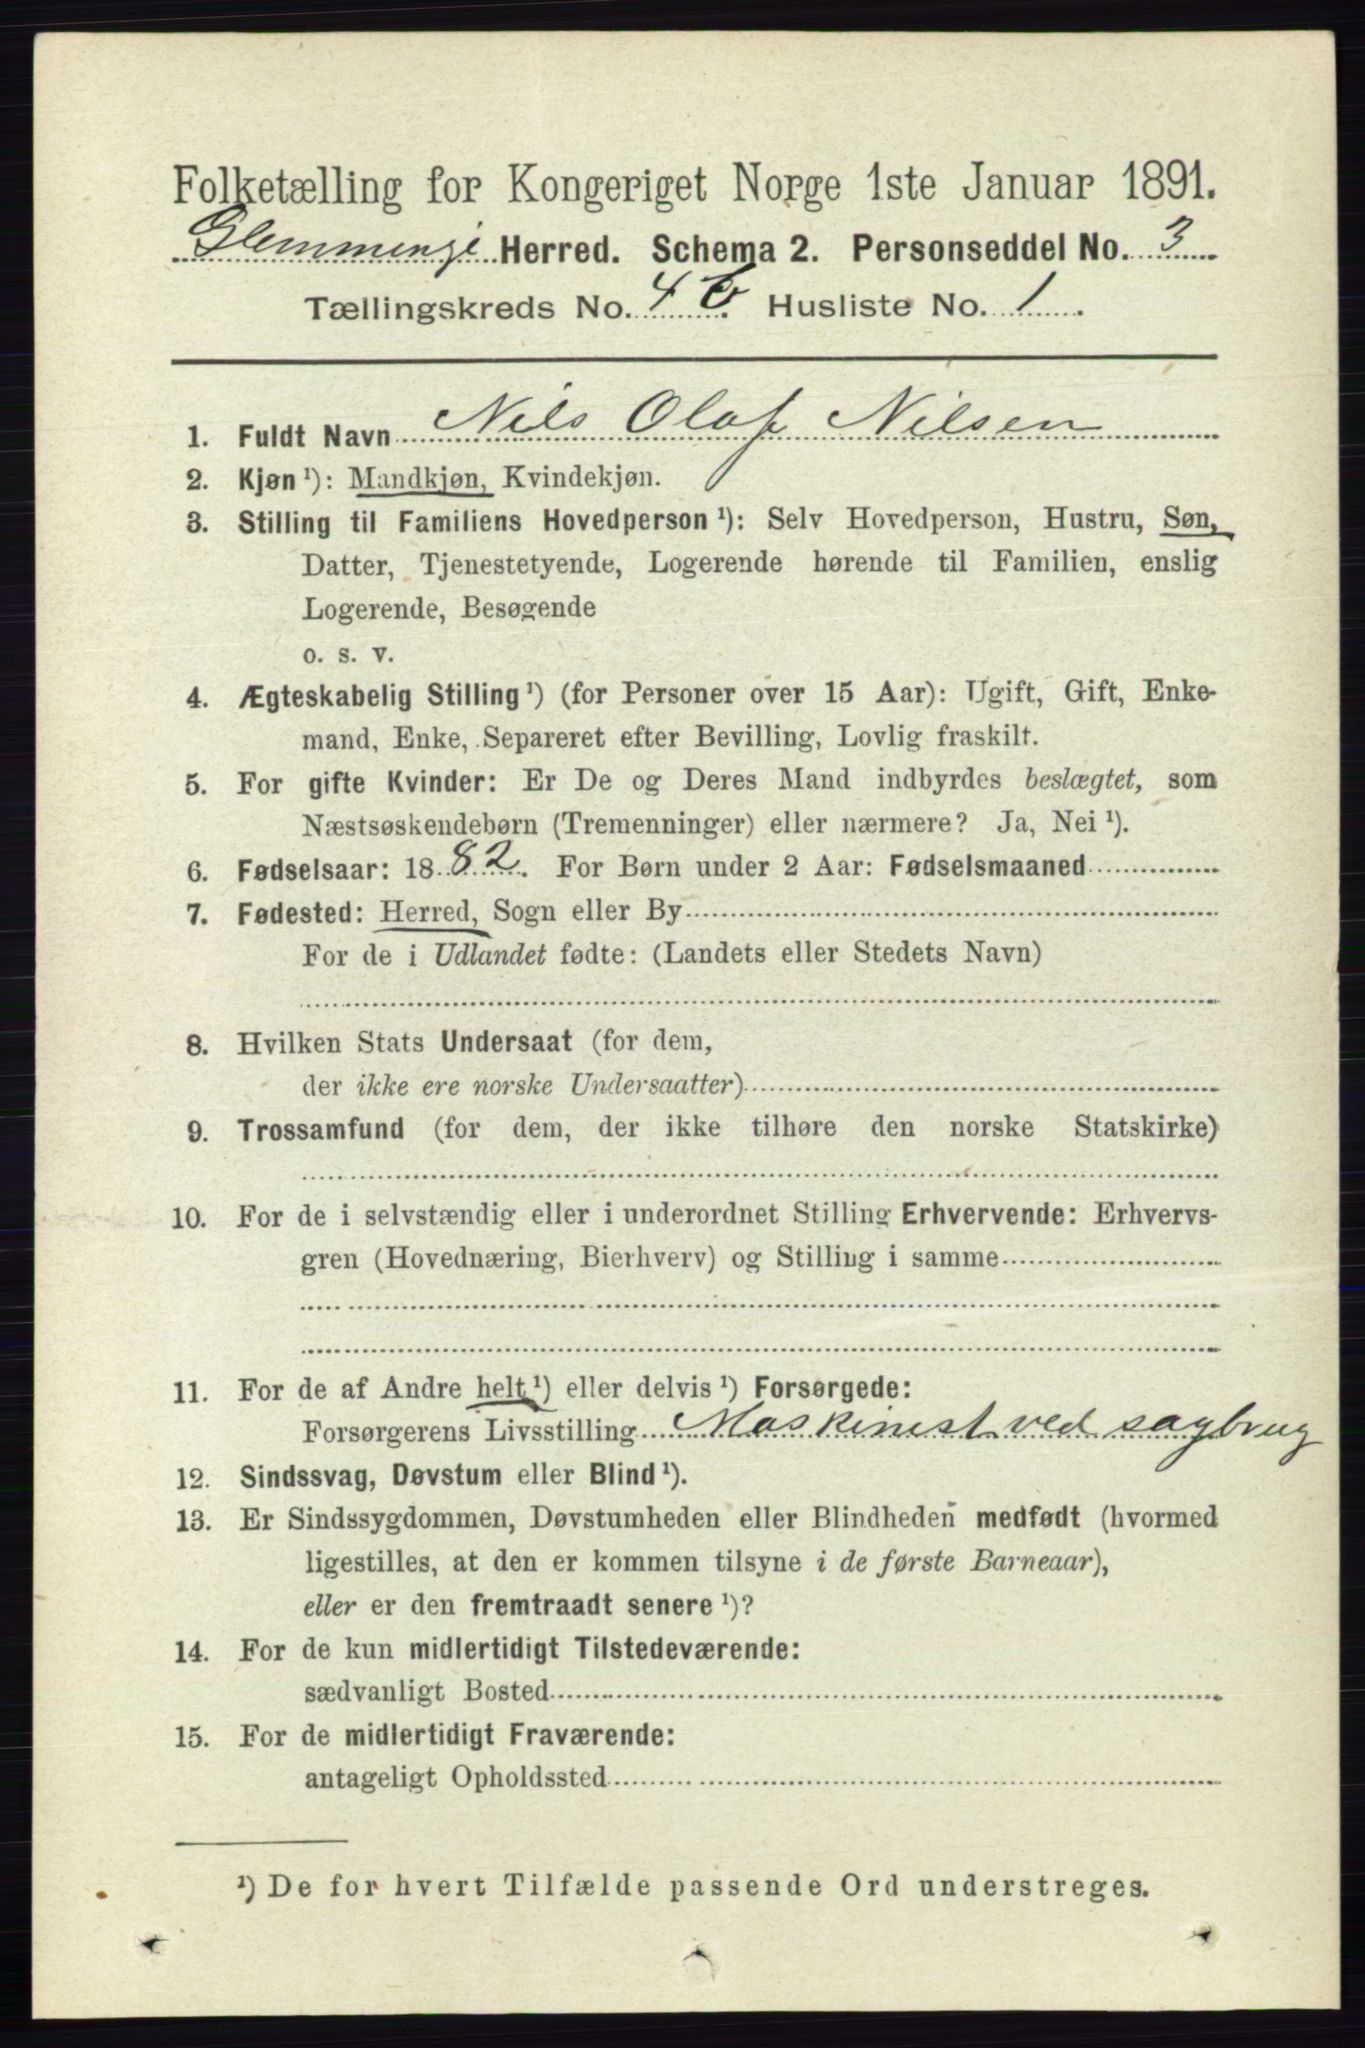 Folketælling for Kongeriget Norge 1ste Januar 1891.
Glemminge Herred. Schema 2. Personseddel No. 3
Tællingskreds No. 4 b. Husliste No. 1.
1. Fuldt Navn Nils Olaf Nilsen
2. Kjøn ¹): Mandkjøn, Kvindekjøn.
3. Stilling til Familiens Hovedperson ¹): Selv Hovedperson, Hustru, Søn,
Datter, Tjenestetyende, Logerende hørende til Familien, enslig
Logerende, Besøgende
o. s. v.
4. Ægteskabelig Stilling ¹) (for Personer over 15 Aar): Ugift, Gift, Enke-
mand, Enke, Separeret efter Bevilling, Lovlig fraskilt.
5. For gifte Kvinder: Er De og Deres Mand indbyrdes beslægtet, som
Næstsøskendebørn (Tremenninger) eller nærmere? Ja, Nei ¹).
6. Fødselsaar: 1882. For Børn under 2 Aar: Fødselsmaaned
7. Fødested: Herred, Sogn eller By
For de i Udlandet fødte: (Landets eller Stedets Navn)
8. Hvilken Stats Undersaat (for dem,
der ikke ere norske Undersaatter)
9. Trossamfund (for dem, der ikke tilhøre den norske Statskirke)
10. For de i selvstændig eller i underordnet Stilling Erhvervende: Erhvervs-
gren (Hovednæring, Bierhverv) og Stilling i samme
11. For de af Andre helt ¹) eller delvis ¹) Forsørgede:
Forsørgerens Livsstilling Maskinist ved sagbrug
12. Sindssvag, Døvstum eller Blind ¹).
13. Er Sindssygdommen, Døvstumheden eller Blindheden medfødt (hvormed
ligestilles, at den er kommen tilsyne i de første Barneaar),
eller er den fremtraadt senere ¹)?
14. For de kun midlertidigt Tilstedeværende:
sædvanligt Bosted
15. For de midlertidigt Fraværende:
antageligt Opholdssted
¹) De for hvert Tilfælde passende Ord understreges.